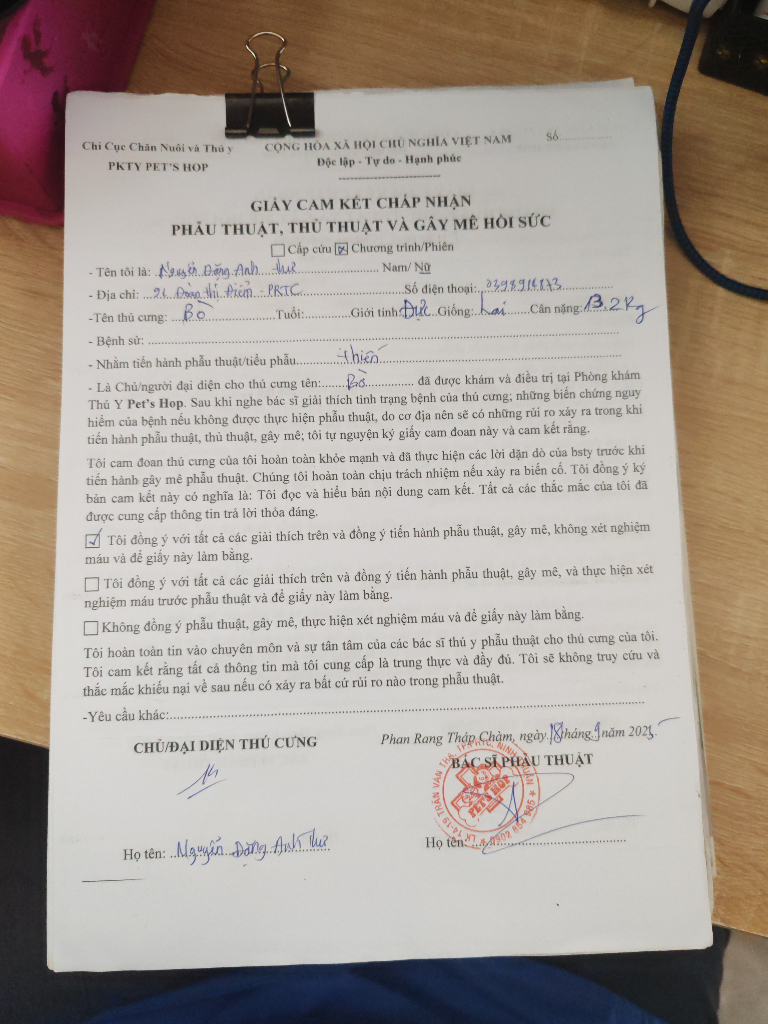 Chi Cục Chăn Nuôi và Thú y
PKTY PET'S HOP
CỘNG HÒA XÃ HỘI CHỦ NGHĨA VIỆT NAM
Độc lập - Tự do - Hạnh phúc
Số..................
GIẤY CAM KẾT CHẤP NHẬN
PHẪU THUẬT, THỦ THUẬT VÀ GÂY MÊ HỒI SỨC
☐ Cấp cứu ☒ Chương trình/Phiên
- Tên tôi là: Nguyễn Đặng Anh Thư Nam/ Nữ
- Địa chỉ: Đoàn Thị Điểm - PRTC Số điện thoại:
-Tên thú cưng: Bò Tuổi: Giới tính: Đực Giống: Lai Cân nặng: 13.2 Kg
- Bệnh sử:
- Nhằm tiến hành phẫu thuật/tiểu phẫu: Thiến
- Là Chủ/người đại diện cho thú cưng tên: Bò đã được khám và điều trị tại Phòng khám
Thú Y Pet's Hop. Sau khi nghe bác sĩ giải thích tình trạng bệnh của thú cưng; những biến chứng nguy
hiểm của bệnh nếu không được thực hiện phẫu thuật, do cơ địa nên sẽ có những rủi ro xảy ra trong khi
tiến hành phẫu thuật, thủ thuật, gây mê; tôi tự nguyện ký giấy cam đoan này và cam kết rằng.
Tôi cam đoan thú cưng của tôi hoàn toàn khỏe mạnh và đã thực hiện các lời dặn dò của bsty trước khi
tiến hành gây mê phẫu thuật. Chúng tôi hoàn toàn chịu trách nhiệm nếu xảy ra biến cố. Tôi đồng ý ký
bản cam kết này có nghĩa là: Tôi đọc và hiểu bản nội dung cam kết. Tất cả các thắc mắc của tôi đã
được cung cấp thông tin trả lời thỏa đáng.
☑ Tôi đồng ý với tất cả các giải thích trên và đồng ý tiến hành phẫu thuật, gây mê, không xét nghiệm
máu và để giấy này làm bằng.
☐ Tôi đồng ý với tất cả các giải thích trên và đồng ý tiến hành phẫu thuật, gây mê, và thực hiện xét
nghiệm máu trước phẫu thuật và để giấy này làm bằng.
☐ Không đồng ý phẫu thuật, gây mê, thực hiện xét nghiệm máu và để giấy này làm bằng.
Tôi hoàn toàn tin vào chuyên môn và sự tân tâm của các bác sĩ thú y phẫu thuật cho thú cưng của tôi.
Tôi cam kết rằng tất cả thông tin mà tôi cung cấp là trung thực và đầy đủ. Tôi sẽ không truy cứu và
thắc mắc khiếu nại về sau nếu có xảy ra bất cứ rủi ro nào trong phẫu thuật.
-Yêu cầu khác:
Phan Rang Tháp Chàm, ngày 18 tháng 9 năm 2025
CHỦ/ĐẠI DIỆN THÚ CƯNG
BÁC SĨ PHẪU THUẬT
PET'S HOP
Họ tên: Nguyễn Đặng Anh Thư
Họ tên: